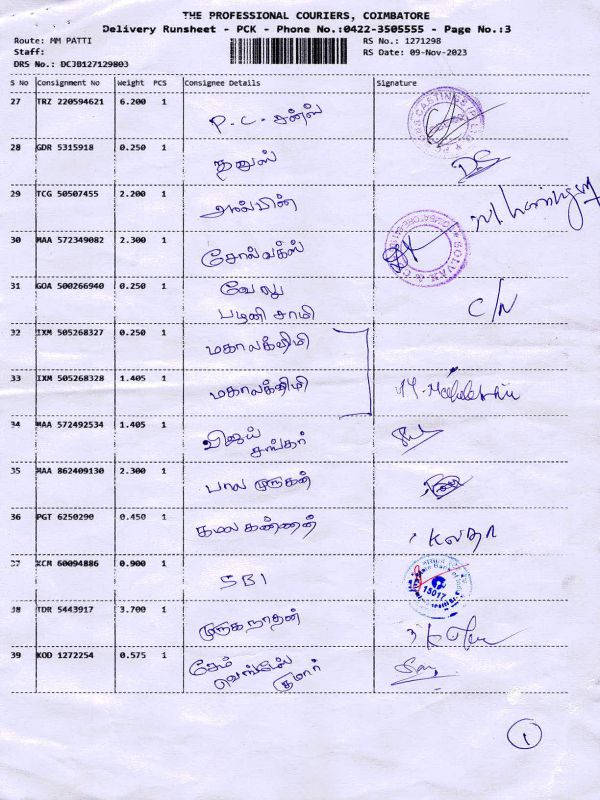 THE PROFESSIONAL COURIERS, COIMBATORE
Delivery Runsheet - PCK - Phone No.:0422-3505555 - Page No.:3
Route: MM PATTI RS No.: 1271298
Staff: RS Date: 09-Nov-2023
DRS No.: DCJB127129803
S No Consignment No Weight PCS Consignee Details Signature
27 TRZ 220594621 6.200 1 P.C. சன்ஸ்
28 GDR 5315918 0.250 1 தனுஸ்
29 TCG 50507455 2.200 1 அல்பின்
30 MAA 572349082 2.300 1 சோல்வக்ஸ்
31 GOA 500266940 0.250 1 வேலு
பழனி சாமி C/N
32 IXM 505268327 0.250 1 மகாலக்ஷ்மி
33 IXM 505268328 1.405 1 மகாலக்ஷ்மி
34 MAA 572492534 1.405 1 விஜய்
சங்கர்
35 MAA 862409130 2.300 1 பால முருகன்
36 PGT 6250290 0.450 1 கமல கண்ணன்
37 XCM 60094886 0.900 1 SBI 15017
38 TDR 5443917 3.700 1 முருகநாதன்
39 KOD 1272254 0.575 1 சேம்
வெங்டேஸ்
குமார்
1